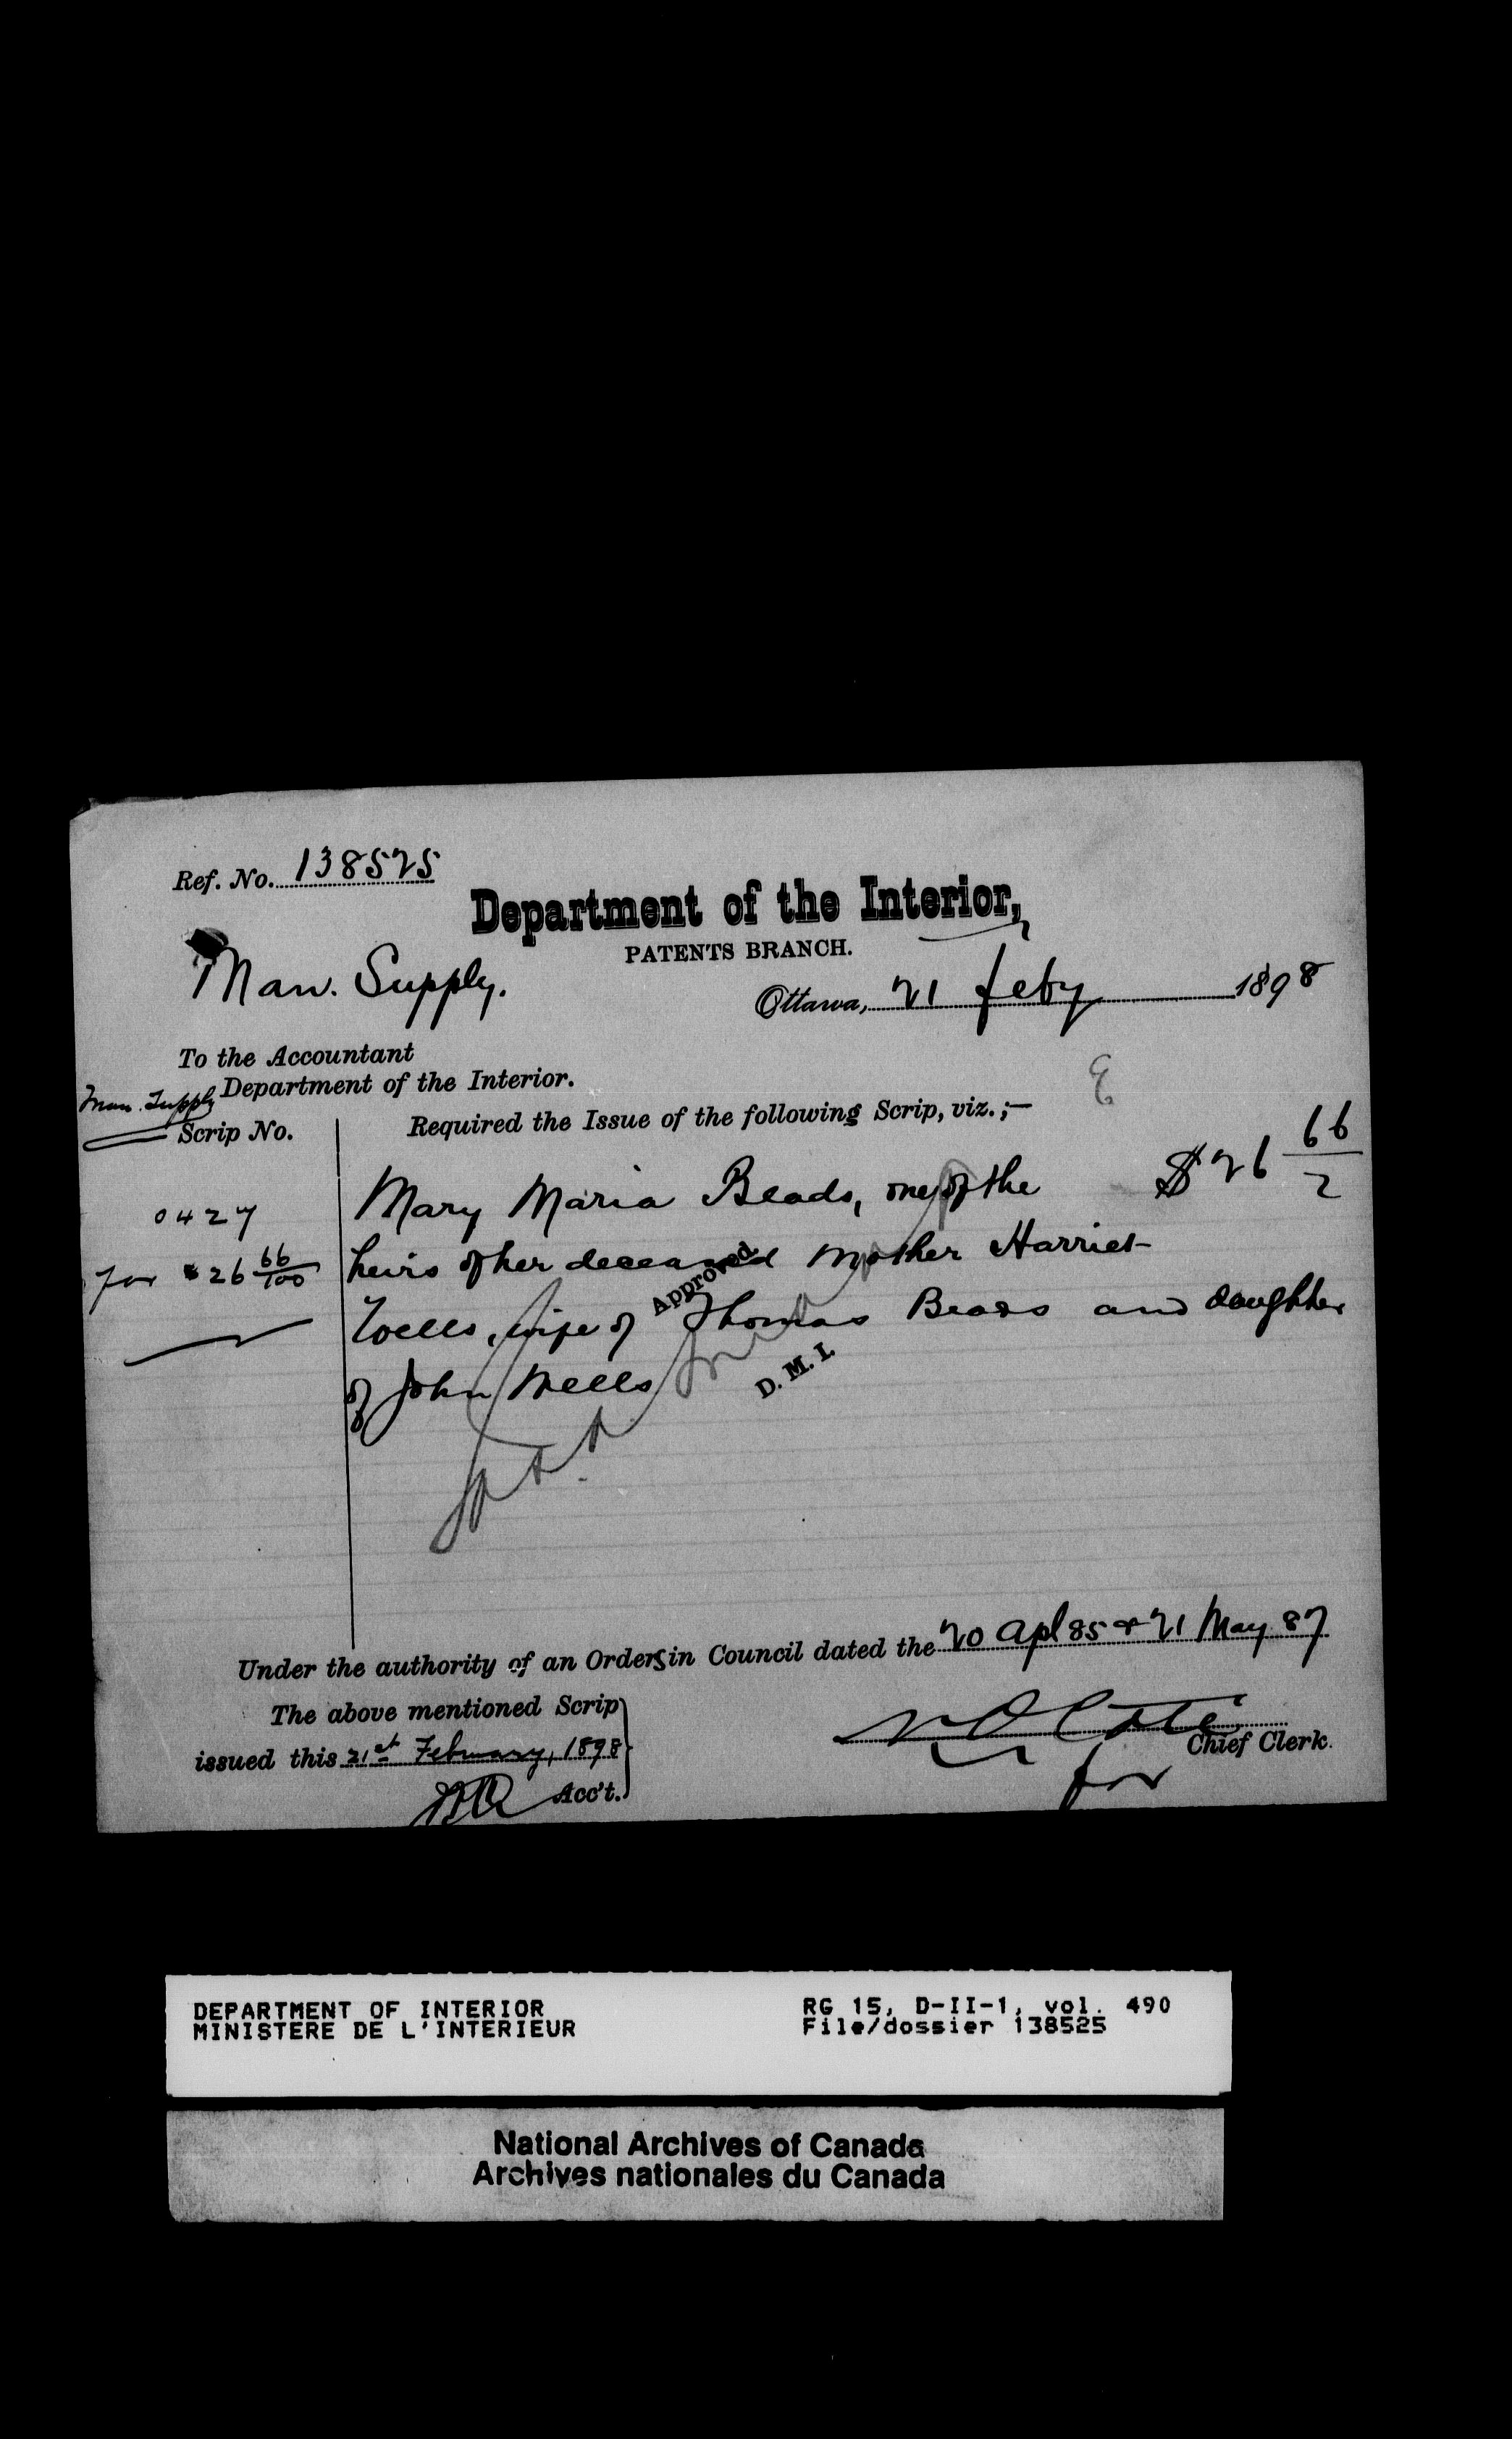 Ref. No. 138525
Department of the Interior,
PATENTS BRANCH.
Man. Supply.
Ottawa, 21 feby 1898
To the Accountant
Department of the Interior.
Man. Supply
Scrip No.
Required the Issue of the following Scrip, viz.;—
Mary Maria Beads, one of the $26 66/2
0427
heirs of her deceased mother Harriet
for $26 66/100
Wells, wife of Thomas Beads and daughter
of John Wells
Approved
D. M. I.
Under the authority of an Orders in Council dated the 20 Apl 85 & 21 May 87
The above mentioned Scrip
issued this 21st February, 1898
Acc't.
N O Coté
Chief Clerk.
for
DEPARTMENT OF INTERIOR
MINISTERE DE L'INTERIEUR
RG 15, D-II-1, vol. 490
File/dossier 138525
National Archives of Canada
Archives nationales du Canada